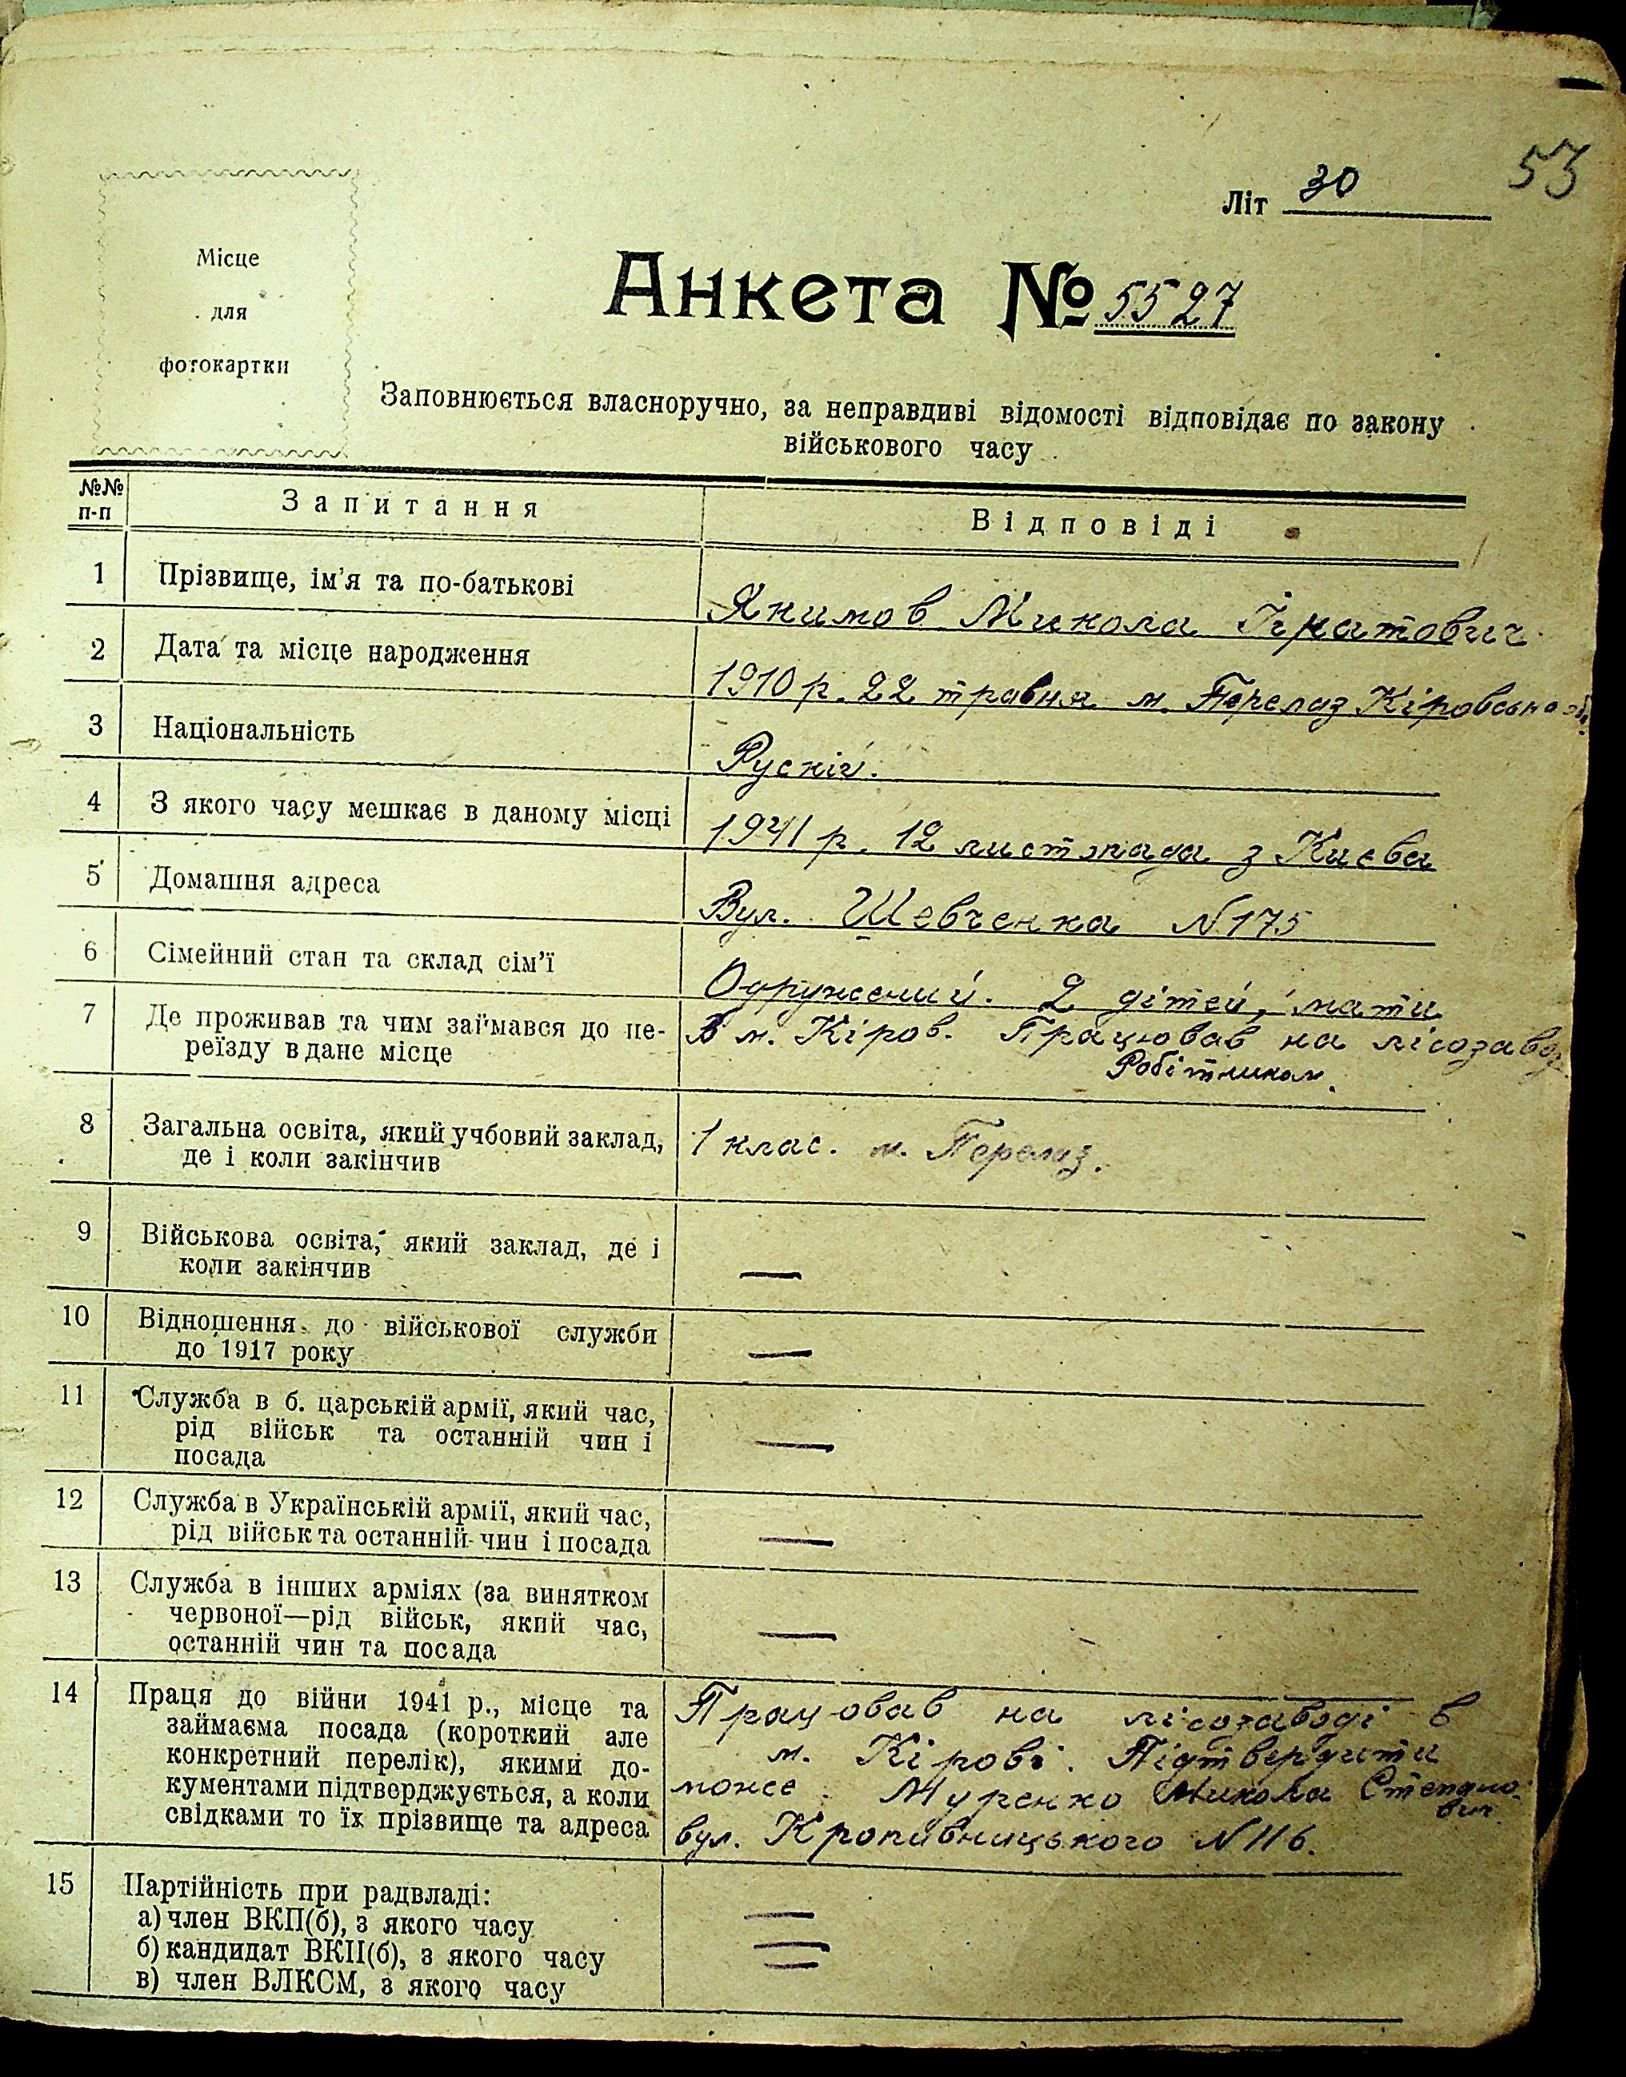 53
Літ 30
Місце
для
фотокартки
Анкета № 5527
Заповнюється власноручно, за неправдиві відомості відповідає по закону
військового часу
№№ п-п Запитання Відповіді
1 Прізвище, ім'я та по-батькові Якимов Микола Ігнатович
2 Дата та місце народження 1910 р. 22 травня м. Перелаз Кіровська об.
3 Національність Рускій.
4 З якого часу мешкає в даному місці 1941 р. 12 листопада з Києва
5 Домашня адреса Вул. Шевченка N 175
6 Сімейний стан та склад сім'ї Одружений. 2 дітей, мати
7 Де проживав та чим займався до пе- В м. Кіров. Працював на лісозавод
реїзду в дане місце Робітником.
8 Загальна освіта, який учбовий заклад, 1 клас. м. Перелаз.
де і коли закінчив
9 Військова освіта, який заклад, де і
коли закінчив —
10 Відношення до військової служби
до 1917 року —
11 Служба в б. царській армії, який час,
рід військ та останній чин і —
посада
12 Служба в Українській армії, який час,
рід військ та останній чин і посада —
13 Служба в інших арміях (за винятком
червоної—рід військ, який час, —
останній чин та посада
14 Праця до війни 1941 р., місце та Працовав на лісозаводі в
займаєма посада (короткий але м. Кірові. Підтвердити
конкретний перелік), якими до- може Муренко Микола Степано-
кументами підтверджується, а коли вич
свідками то їх прізвище та адреса вул. Кропивницького N 116.
15 Партійність при радвладі:
а) член ВКП(б), з якого часу —
б) кандидат ВКП(б), з якого часу —
в) член ВЛКСМ, з якого часу —